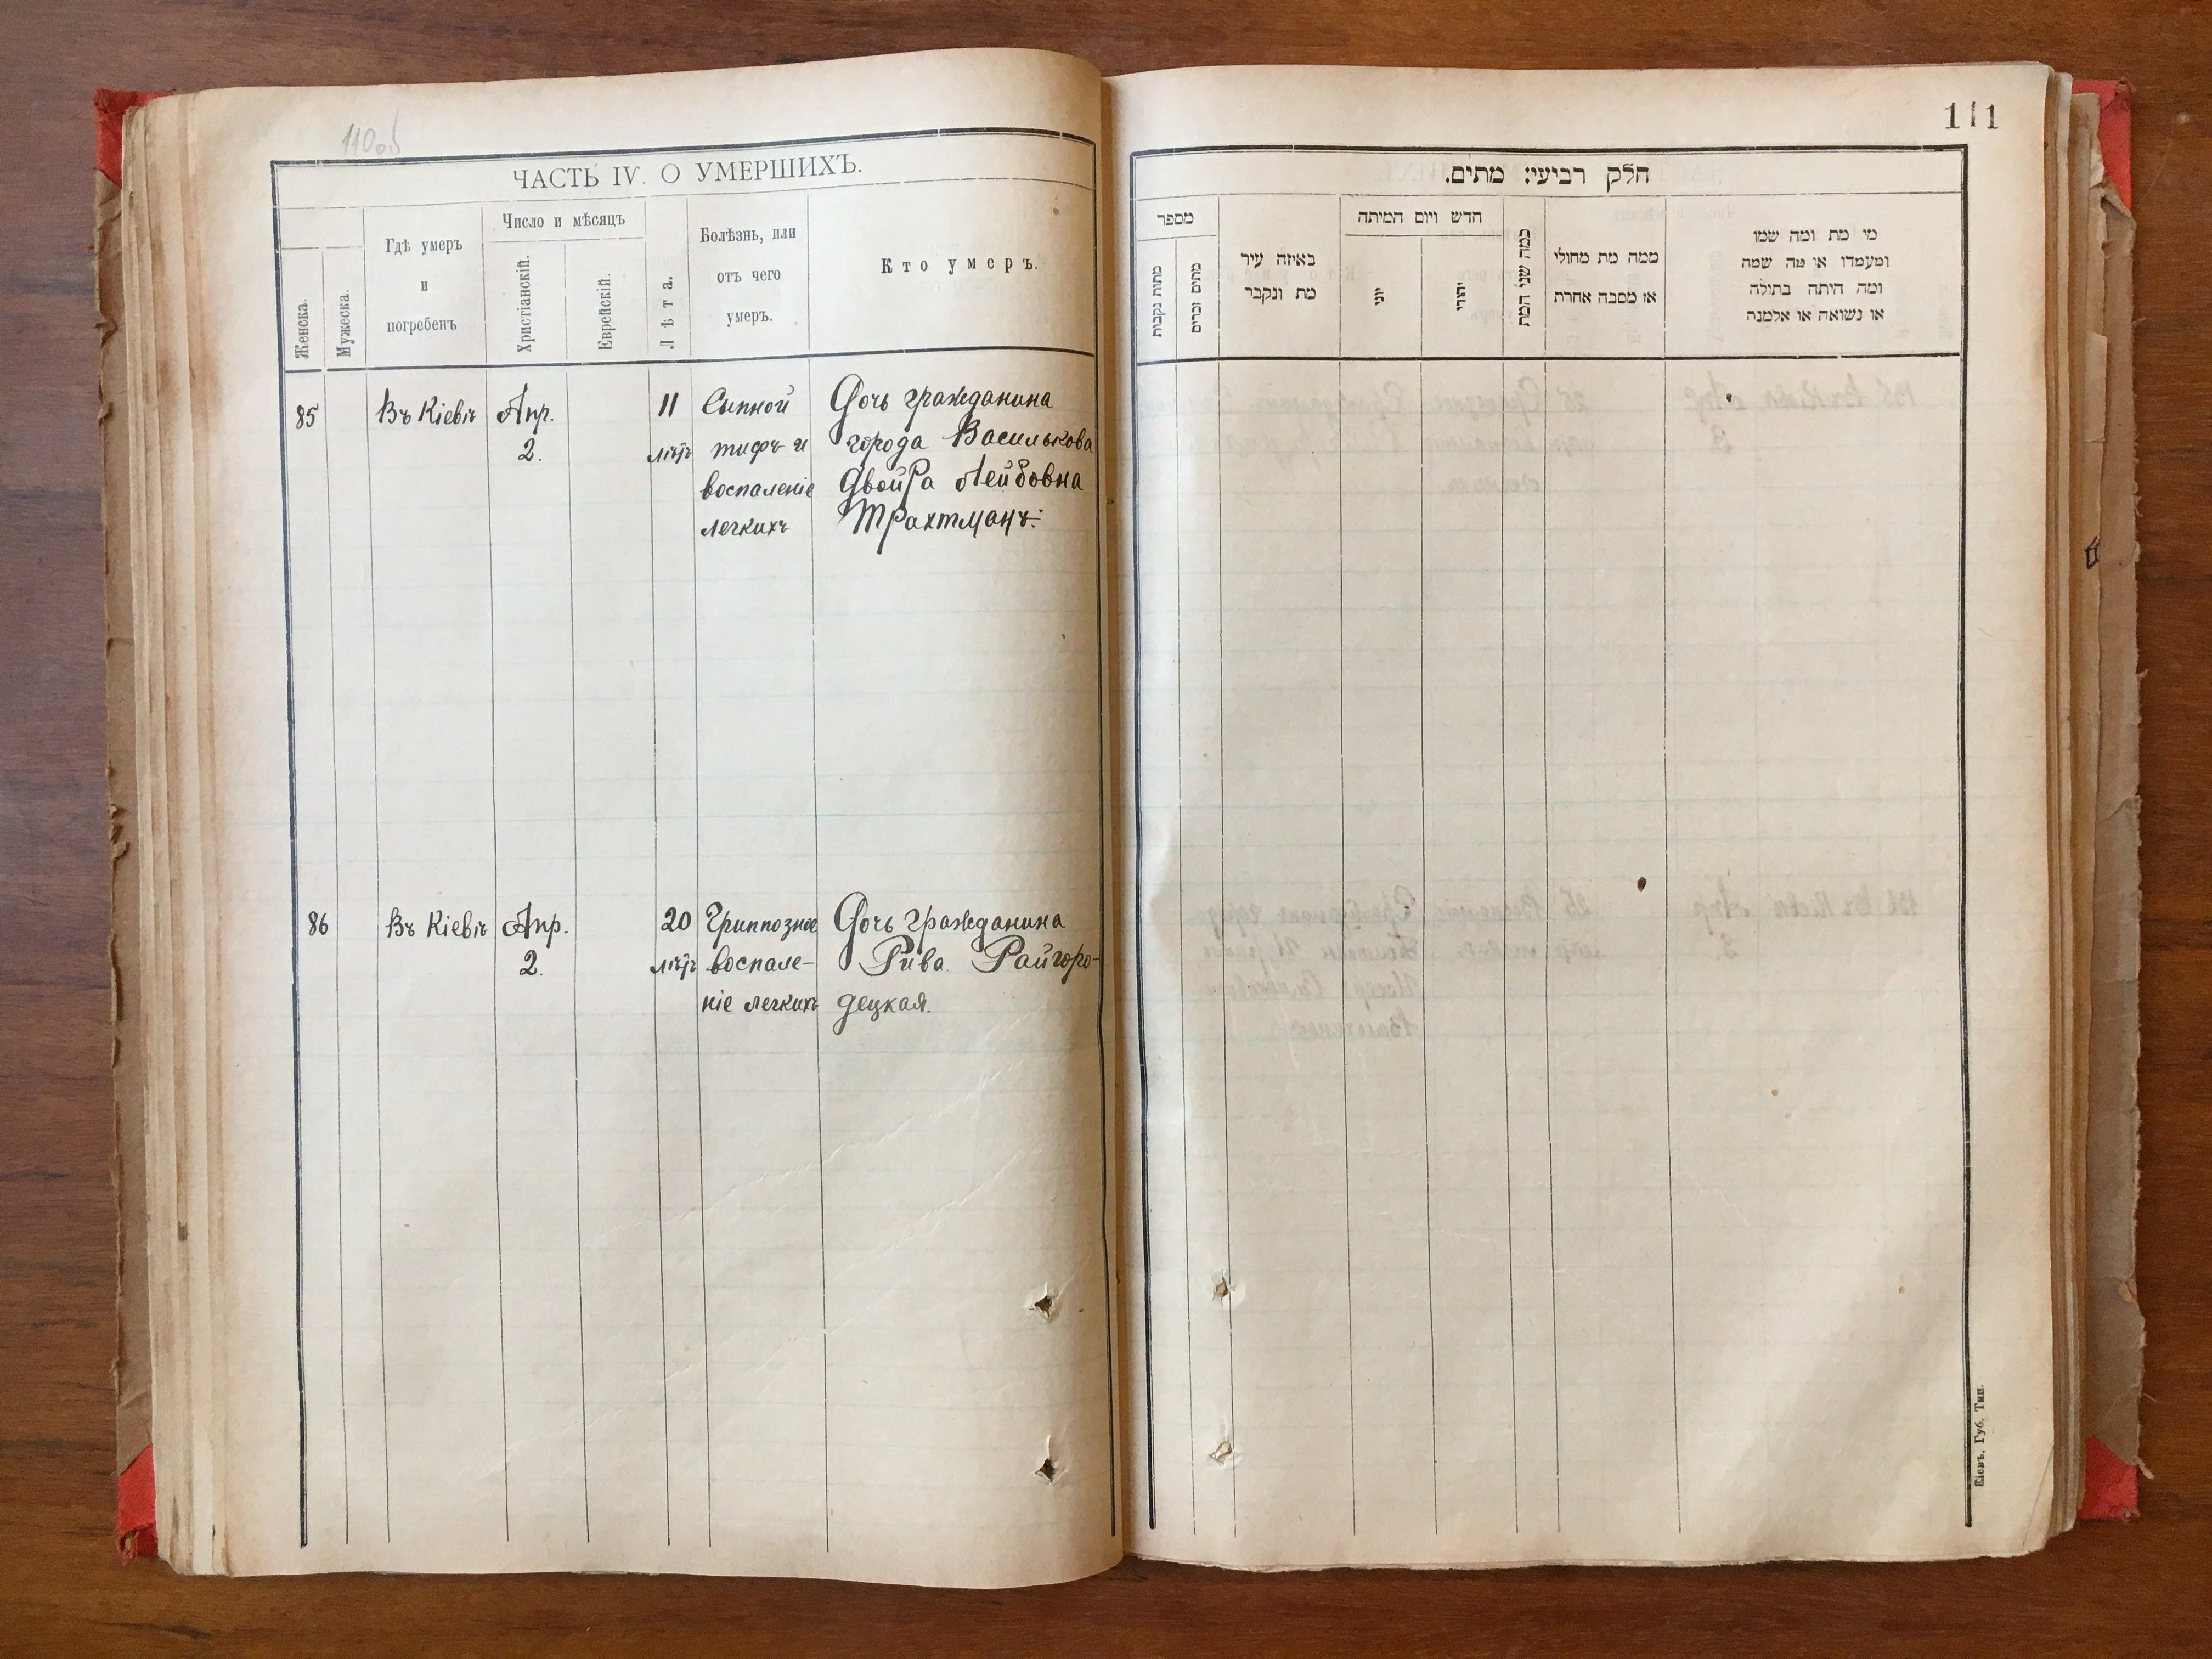 110об
ЧАСТЬ IV. О УМЕРШИХЪ.
Женска.
Мужеска.
Гдѣ умеръ
и
погребенъ
Число и мѣсяцъ
Христіанскій.
Еврейскій.
Лѣта.
Болѣзнь, или
отъ чего
умеръ.
Кто умеръ.
85 Въ Кіевѣ Апр. 11 Сыпной Дочь гражданина
2. лѣтъ тифъ и города Василькова
воспаленіе Двойра Лейбовна
легкихъ Трахтманъ.
86 Въ Кіевѣ Апр. 20 Гриппозное Дочь гражданина
2. лѣтъ воспале- Рива Райгоро-
ніе легкихъ децкая.
111
חלק רביעי: מתים.
מספר
מתות נקבות
מתים זכרים
באיזה עיר
מת ונקבר
חדש ויום המיתה
יוני
יהודי
כמה שני המת
ממה מת מחולי
או מסבה אחרת
מי מת ומה שמו
ומעמדו או מה שמה
ומה היתה בתולה
או נשואה או אלמנה
Кіевъ. Губ. Тип.